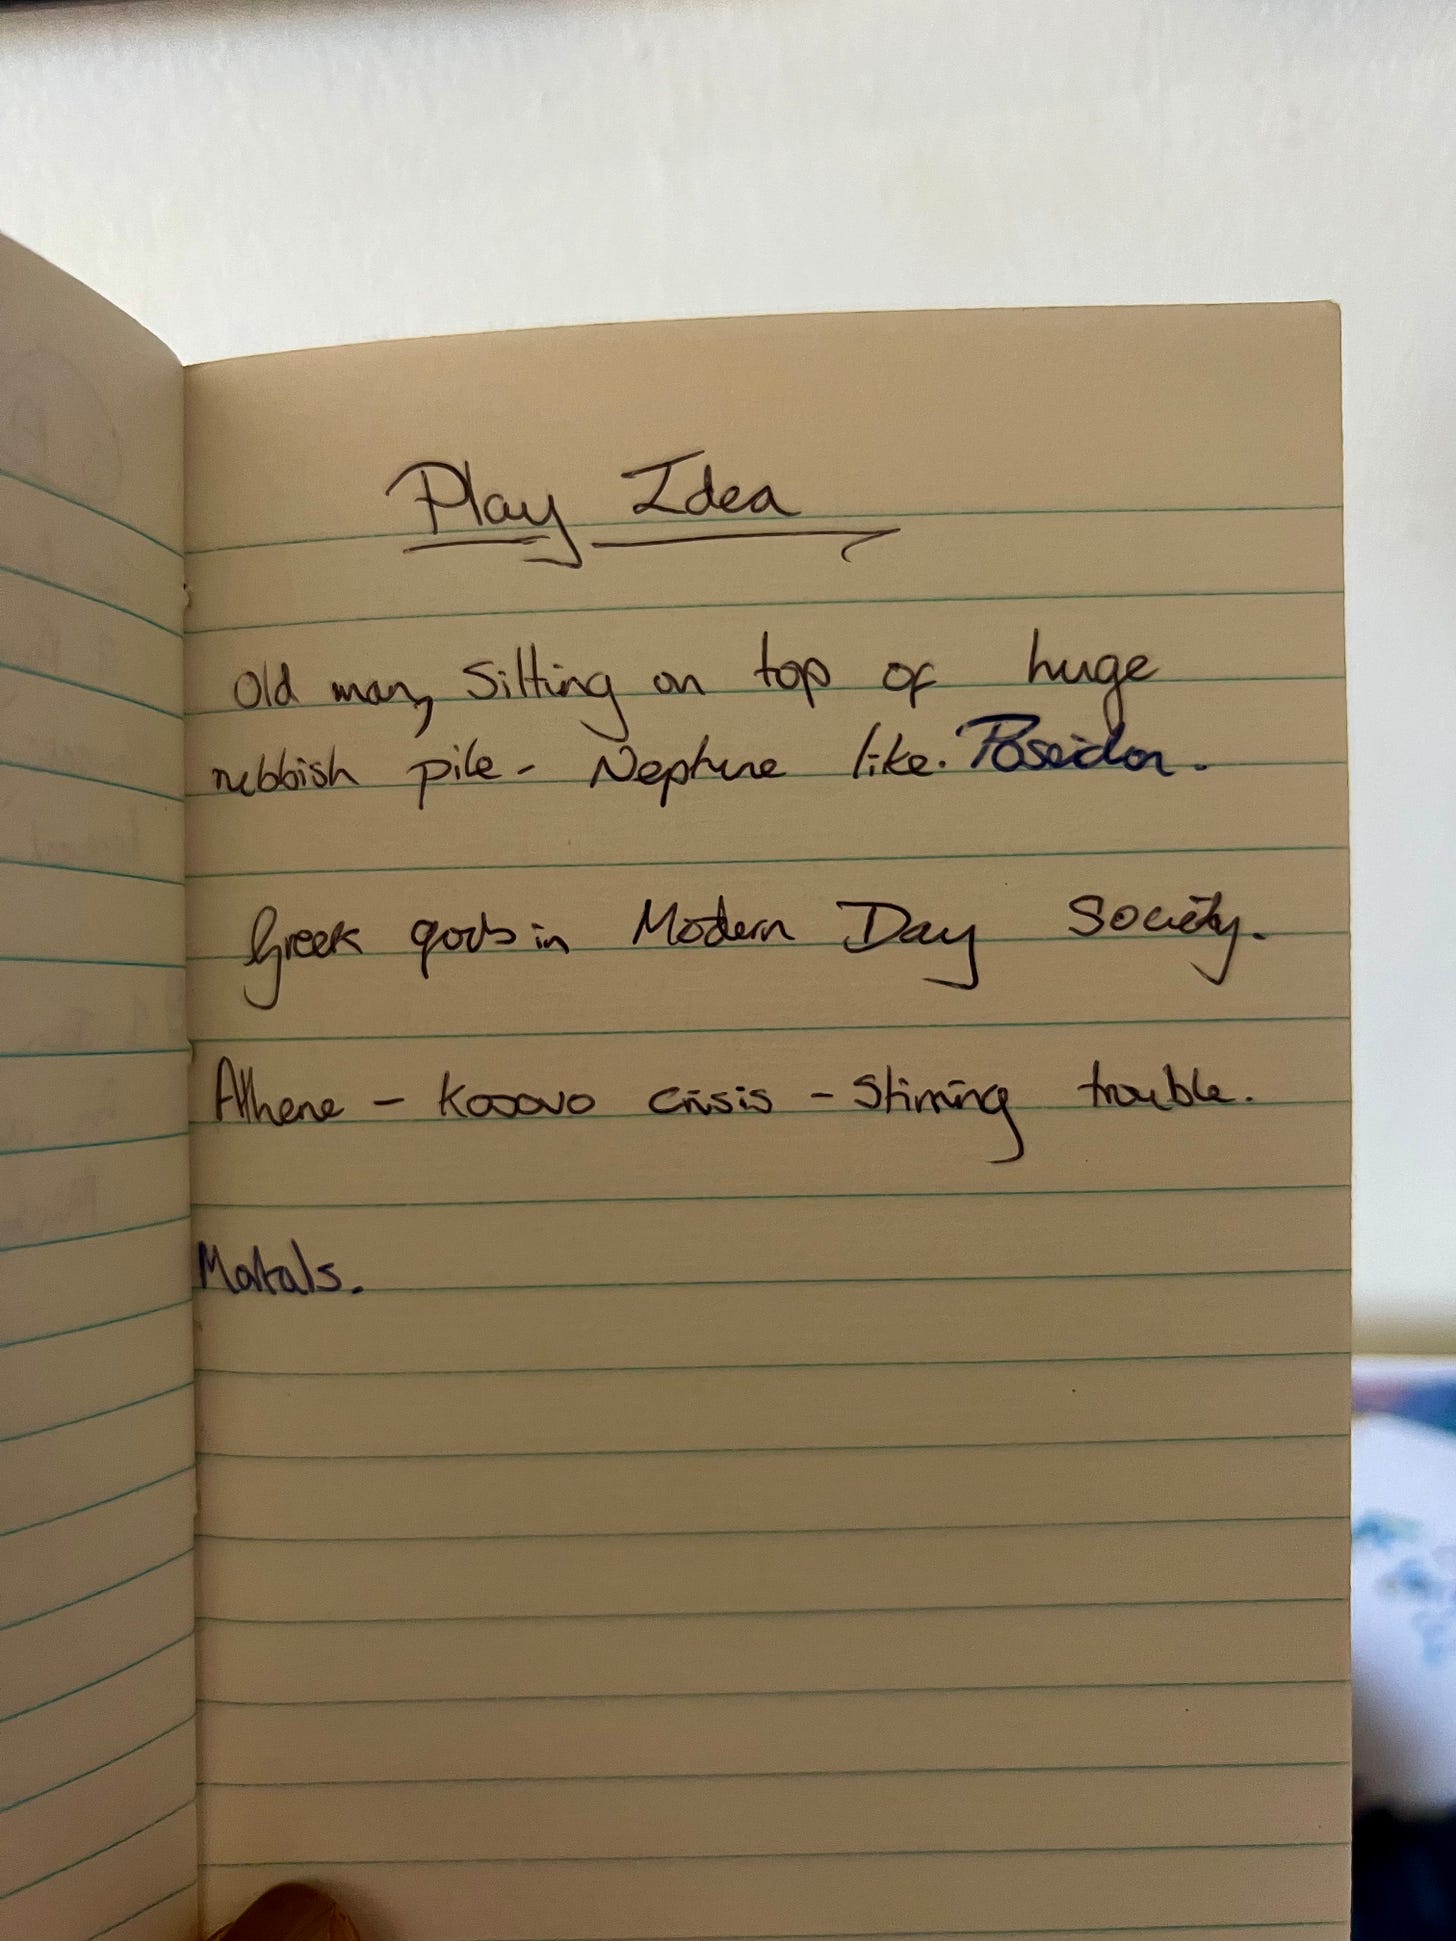 Play Idea
Old man, sitting on top of huge
rubbish pile - Neptune like. Poseidon.
Greek gods in Modern Day Society.
Athene - Kosovo crisis - Stirring trouble.
Mortals.